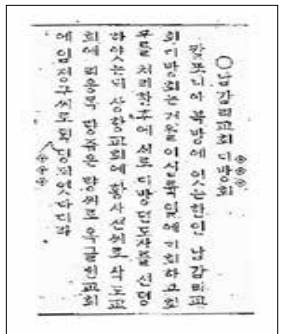 ○남감리교회 디방회
캴포니아 북방에 잇는한인 남감리교
회디방회는 거월이십륙일에 기회하고회
무를 처리한후에 서로 디방뎐도사를 선뎡
하얏는데 상항교회에 황사선씨로 삭도교
회에 리용목 한쥭은 량씨로 옥글린교회
에 임정구씨로 된 뎡되엿다더라